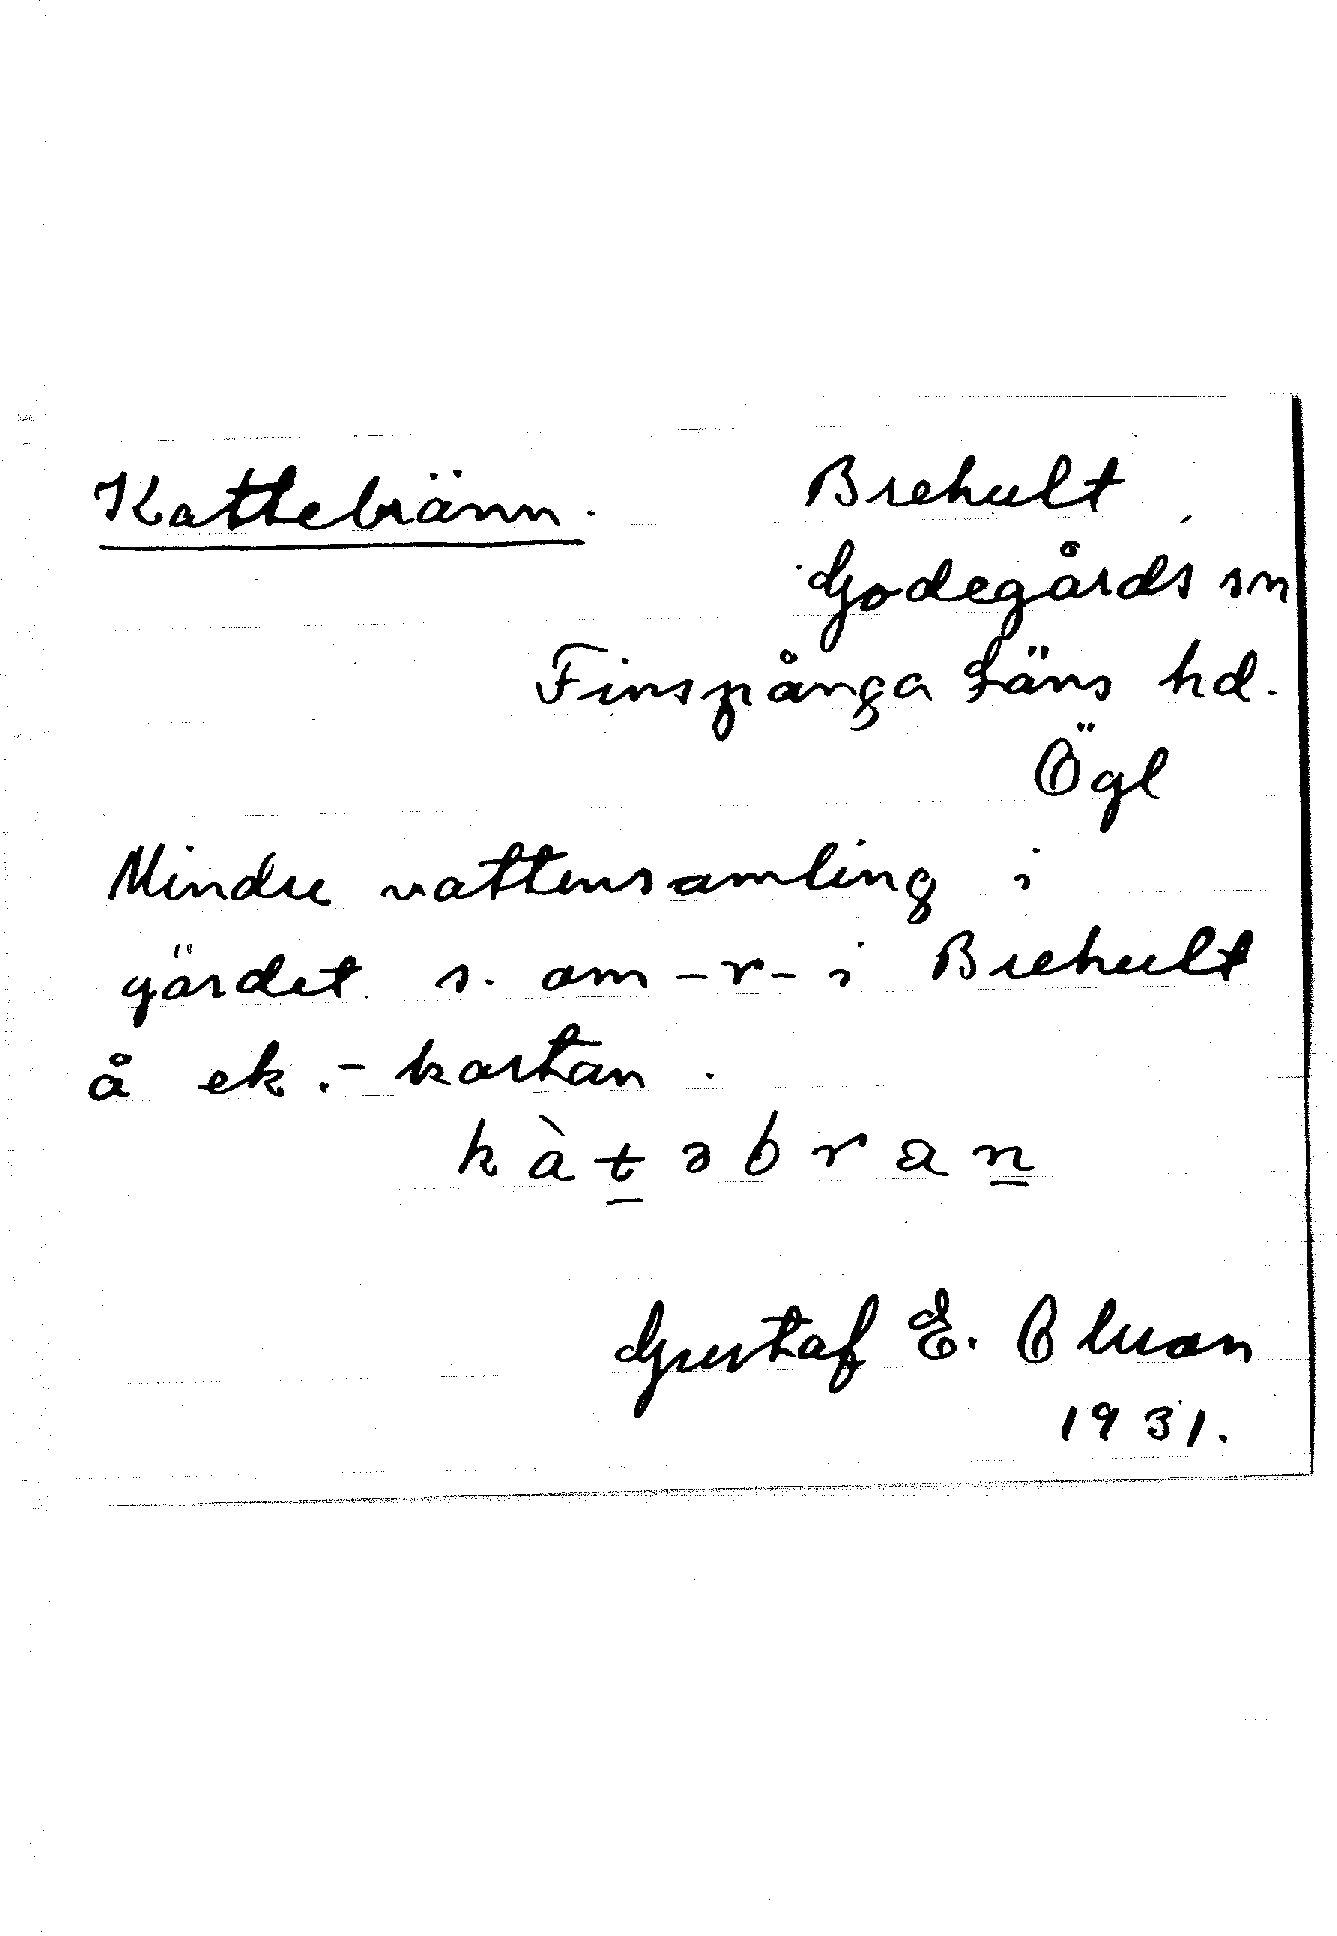 Kattebränn. Brehult
Godegårds sn
Finspånga Läns hd.
Ögl
Mindre vattensamling i
gärdet s. om -r- i Brehult
å ek.-kartan.
kàt̲əbran̲
Gustaf E. Olsson
1931.